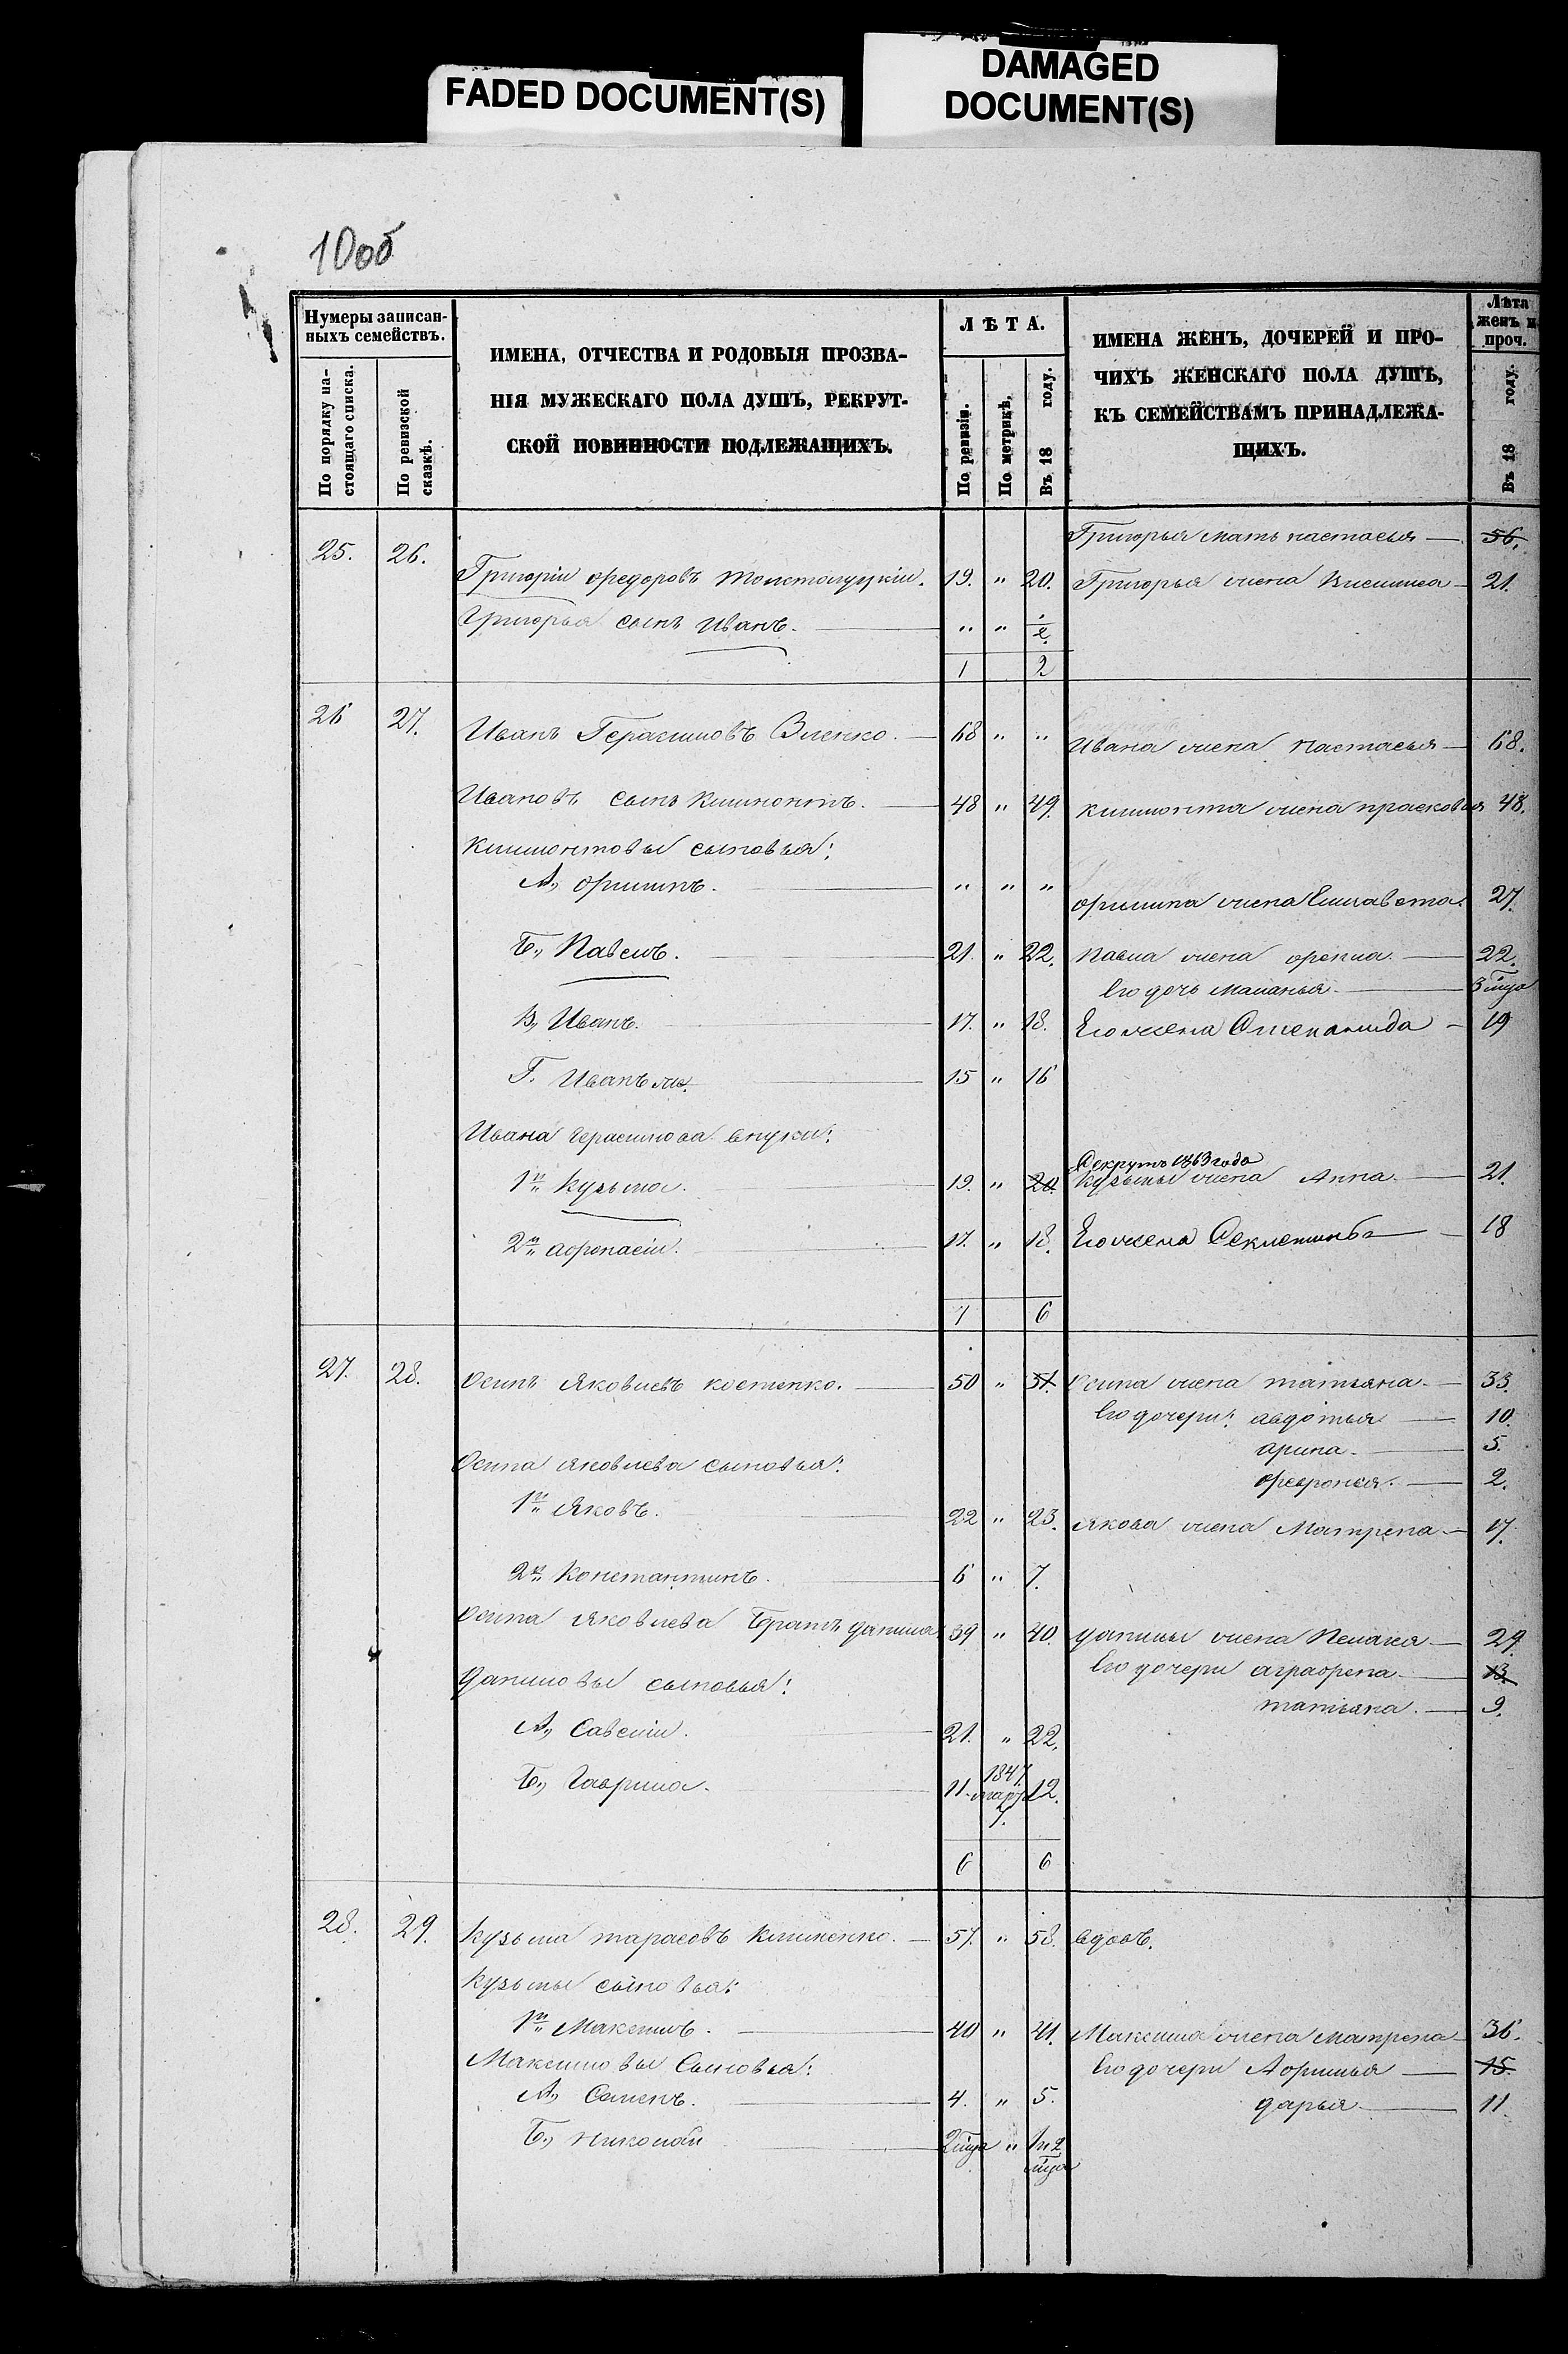 FADED DOCUMENT(S)
DAMAGED
DOCUMENT(S)
10об
Нумеры записан-
ныхъ семействъ.
По порядку на-
стоящаго списка.
По ревизской
сказкѣ.
ИМЕНА, ОТЧЕСТВА И РОДОВЫЯ ПРОЗВА-
НІЯ МУЖЕСКАГО ПОЛА ДУШЪ, РЕКРУТ-
СКОЙ ПОВИННОСТИ ПОДЛЕЖАЩИХЪ.
ЛѢТА.
По ревизіи.
По метрикѣ.
Въ 18 году.
ИМЕНА ЖЕНЪ, ДОЧЕРЕЙ И ПРО-
ЧИХЪ ЖЕНСКАГО ПОЛА ДУШЪ,
КЪ СЕМЕЙСТВАМЪ ПРИНАДЛЕЖА-
ЩИХЪ.
Лѣта
женъ и
проч.
Въ 18 году.
Григорья мать настасья 56.
25. 26. Григорій федоровъ 19. " 20. Григорья жена 21.
Григорья сынъ Иванъ. " " 1/2.
1 2
26 27. Иванъ Герасимовъ 68 " " Ивана жена настасья 68.
Ивановъ сынъ климонтъ. 48 " 49. климонта жена прасковья 48.
климонтовы сыновья:
А, филипъ. " " " филипа жена Елисавета 27.
Б, Павелъ. 21. " 22. павла жена 22.
Его дочь маланья 3 мѣца
В, Иванъ. 17. " 18. Его жена Степанида 19
Г. Иванъ же. 15 " 16
Ивана герасимова внуки:
Рекрутъ 1863 года
1й кузьма. 19. " 20. кузьмы жена Анна. 21.
2й афонасій. 17. " 18. Его жена 18
7 6
27. 28. Осипъ яковлевъ костенко. 50 " 51. Осипа жена татьяна. 33.
Его дочери: авдотья 10.
арина. 5.
Осипа яковлева сыновья: февронья. 2.
1й яковъ. 22 " 23. якова жена Матрена 17.
2й константинъ. 6 " 7.
Осипа яковлева братъ данила 39 " 40. данилы жена Пелагея 29.
Его дочери аграфена 13.
Даниловы сыновья: татьяна. 9.
А, Савелій. 21. " 22.
Б, Гаврила. 11. 1847. марта 7. 12.
6 6
28. 29. кузьма тарасовъ клименко. 57. " 58. вдовъ.
кузьмы сыновья:
1й Максимъ. 40 " 41. Максима жена матрена 36.
Максимовы Сыновья: Его дочери 15.
А, Семенъ. 4. " 5. дарья 11.
Б, николай 2 мѣца " 1 и 2 мѣца